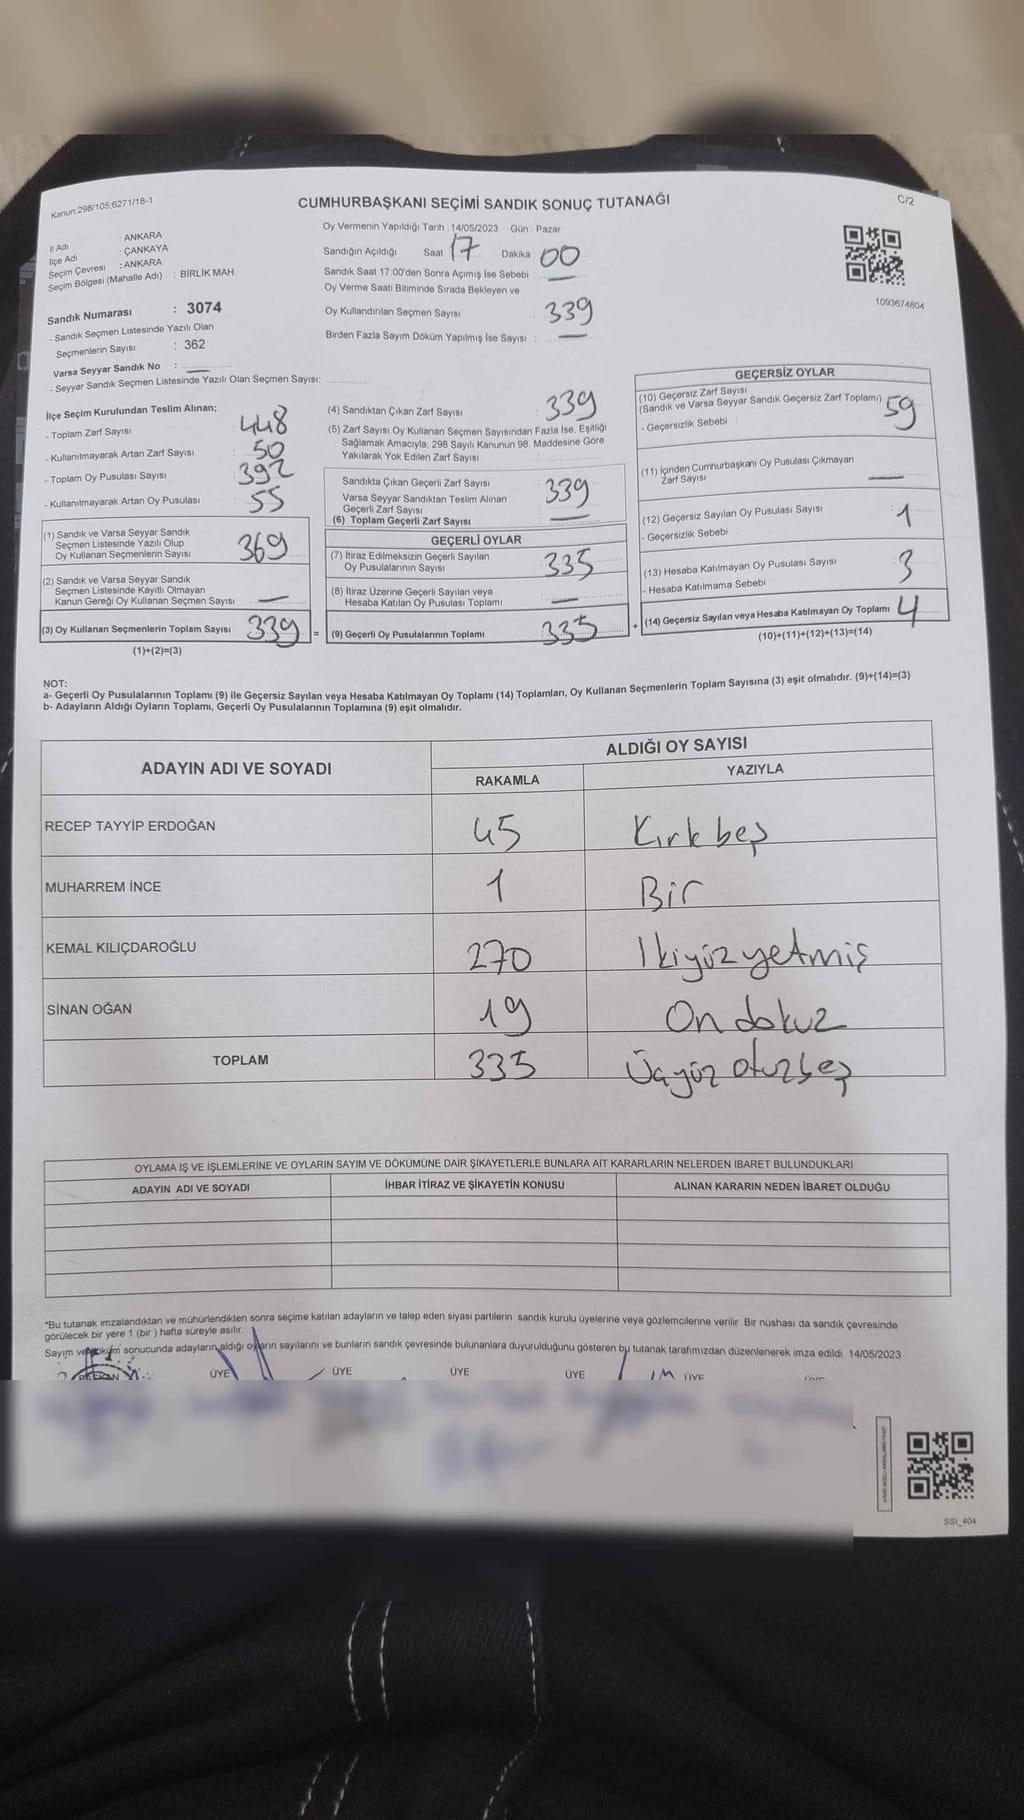 Kanun:298/105,6271/18-1
CUMHURBAŞKANI SEÇİMİ SANDIK SONUÇ TUTANAĞI
C/2
İl Adı : ANKARA
İlçe Adı : ÇANKAYA
Seçim Çevresi : ANKARA
Seçim Bölgesi (Mahalle Adı) : BİRLİK MAH.
Sandık Numarası : 3074
- Sandık Seçmen Listesinde Yazılı Olan
Seçmenlerin Sayısı : 362
Varsa Seyyar Sandık No :
- Seyyar Sandık Seçmen Listesinde Yazılı Olan Seçmen Sayısı:
Oy Vermenin Yapıldığı Tarih : 14/05/2023 Gün : Pazar
Sandığın Açıldığı Saat 17 Dakika : 00
Sandık Saat 17:00'den Sonra Açımış İse Sebebi :
Oy Verme Saati Bitiminde Sırada Bekleyen ve
Oy Kullandırılan Seçmen Sayısı : 339
Birden Fazla Sayım Döküm Yapılmış İse Sayısı :
1093674804
İlçe Seçim Kurulundan Teslim Alınan;
- Toplam Zarf Sayısı : 448
- Kullanılmayarak Artan Zarf Sayısı : 50
- Toplam Oy Pusulası Sayısı : 392
- Kullanılmayarak Artan Oy Pusulası : 55
(1) Sandık ve Varsa Seyyar Sandık
Seçmen Listesinde Yazılı Olup
Oy Kullanan Seçmenlerin Sayısı 369
(2) Sandık ve Varsa Seyyar Sandık
Seçmen Listesinde Kayıtlı Olmayan
Kanun Gereği Oy Kullanan Seçmen Sayısı :
(3) Oy Kullanan Seçmenlerin Toplam Sayısı 339 =
(1)+(2)=(3)
(4) Sandıktan Çıkan Zarf Sayısı : 339
(5) Zarf Sayısı Oy Kullanan Seçmen Sayısından Fazla İse, Eşitliği
Sağlamak Amacıyla; 298 Sayılı Kanunun 98. Maddesine Göre
Yakılarak Yok Edilen Zarf Sayısı :
Sandıkta Çıkan Geçerli Zarf Sayısı : 339
Varsa Seyyar Sandıktan Teslim Alınan
Geçerli Zarf Sayısı
(6) Toplam Geçerli Zarf Sayısı
GEÇERLİ OYLAR
(7) İtiraz Edilmeksizin Geçerli Sayılan
Oy Pusulalarının Sayısı : 335
(8) İtiraz Üzerine Geçerli Sayılan veya
Hesaba Katılan Oy Pusulası Toplamı
(9) Geçerli Oy Pusulalarının Toplamı 335 +
GEÇERSİZ OYLAR
(10) Geçersiz Zarf Sayısı
(Sandık ve Varsa Seyyar Sandık Geçersiz Zarf Toplamı) 59
- Geçersizlik Sebebi :
(11) İçinden Cumhurbaşkanı Oy Pusulası Çıkmayan
Zarf Sayısı
(12) Geçersiz Sayılan Oy Pusulası Sayısı : 1
- Geçersizlik Sebebi :
(13) Hesaba Katılmayan Oy Pusulası Sayısı : 3
- Hesaba Katılmama Sebebi :
(14) Geçersiz Sayılan veya Hesaba Katılmayan Oy Toplamı 4
(10)+(11)+(12)+(13)=(14)
NOT:
a- Geçerli Oy Pusulalarının Toplamı (9) ile Geçersiz Sayılan veya Hesaba Katılmayan Oy Toplamı (14) Toplamları, Oy Kullanan Seçmenlerin Toplam Sayısına (3) eşit olmalıdır. (9)+(14)=(3)
b- Adayların Aldığı Oyların Toplamı, Geçerli Oy Pusulalarının Toplamına (9) eşit olmalıdır.
ADAYIN ADI VE SOYADI
ALDIĞI OY SAYISI
RAKAMLA YAZIYLA
RECEP TAYYİP ERDOĞAN 45 Kırkbeş
MUHARREM İNCE 1 Bir
KEMAL KILIÇDAROĞLU 270 İkiyüzyetmiş
SİNAN OĞAN 19 On dokuz
TOPLAM 335 Üçyüz otuzbeş
OYLAMA İŞ VE İŞLEMLERİNE VE OYLARIN SAYIM VE DÖKÜMÜNE DAİR ŞİKAYETLERLE BUNLARA AİT KARARLARIN NELERDEN İBARET BULUNDUKLARI
ADAYIN ADI VE SOYADI İHBAR İTİRAZ VE ŞİKAYETİN KONUSU ALINAN KARARIN NEDEN İBARET OLDUĞU
*Bu tutanak imzalandıktan ve mühürlendikten sonra seçime katılan adayların ve talep eden siyasi partilerin sandık kurulu üyelerine veya gözlemcilerine verilir. Bir nüshası da sandık çevresinde
görülecek bir yere 1 (bir) hafta süreyle asılır.
Sayım ve döküm sonucunda adayların aldığı oyların sayılarını ve bunların sandık çevresinde bulunanlara duyurulduğunu gösteren bu tutanak tarafımızdan düzenlenerek imza edildi. 14/05/2023
ÜYE ÜYE ÜYE ÜYE ÜYE
SSI_404